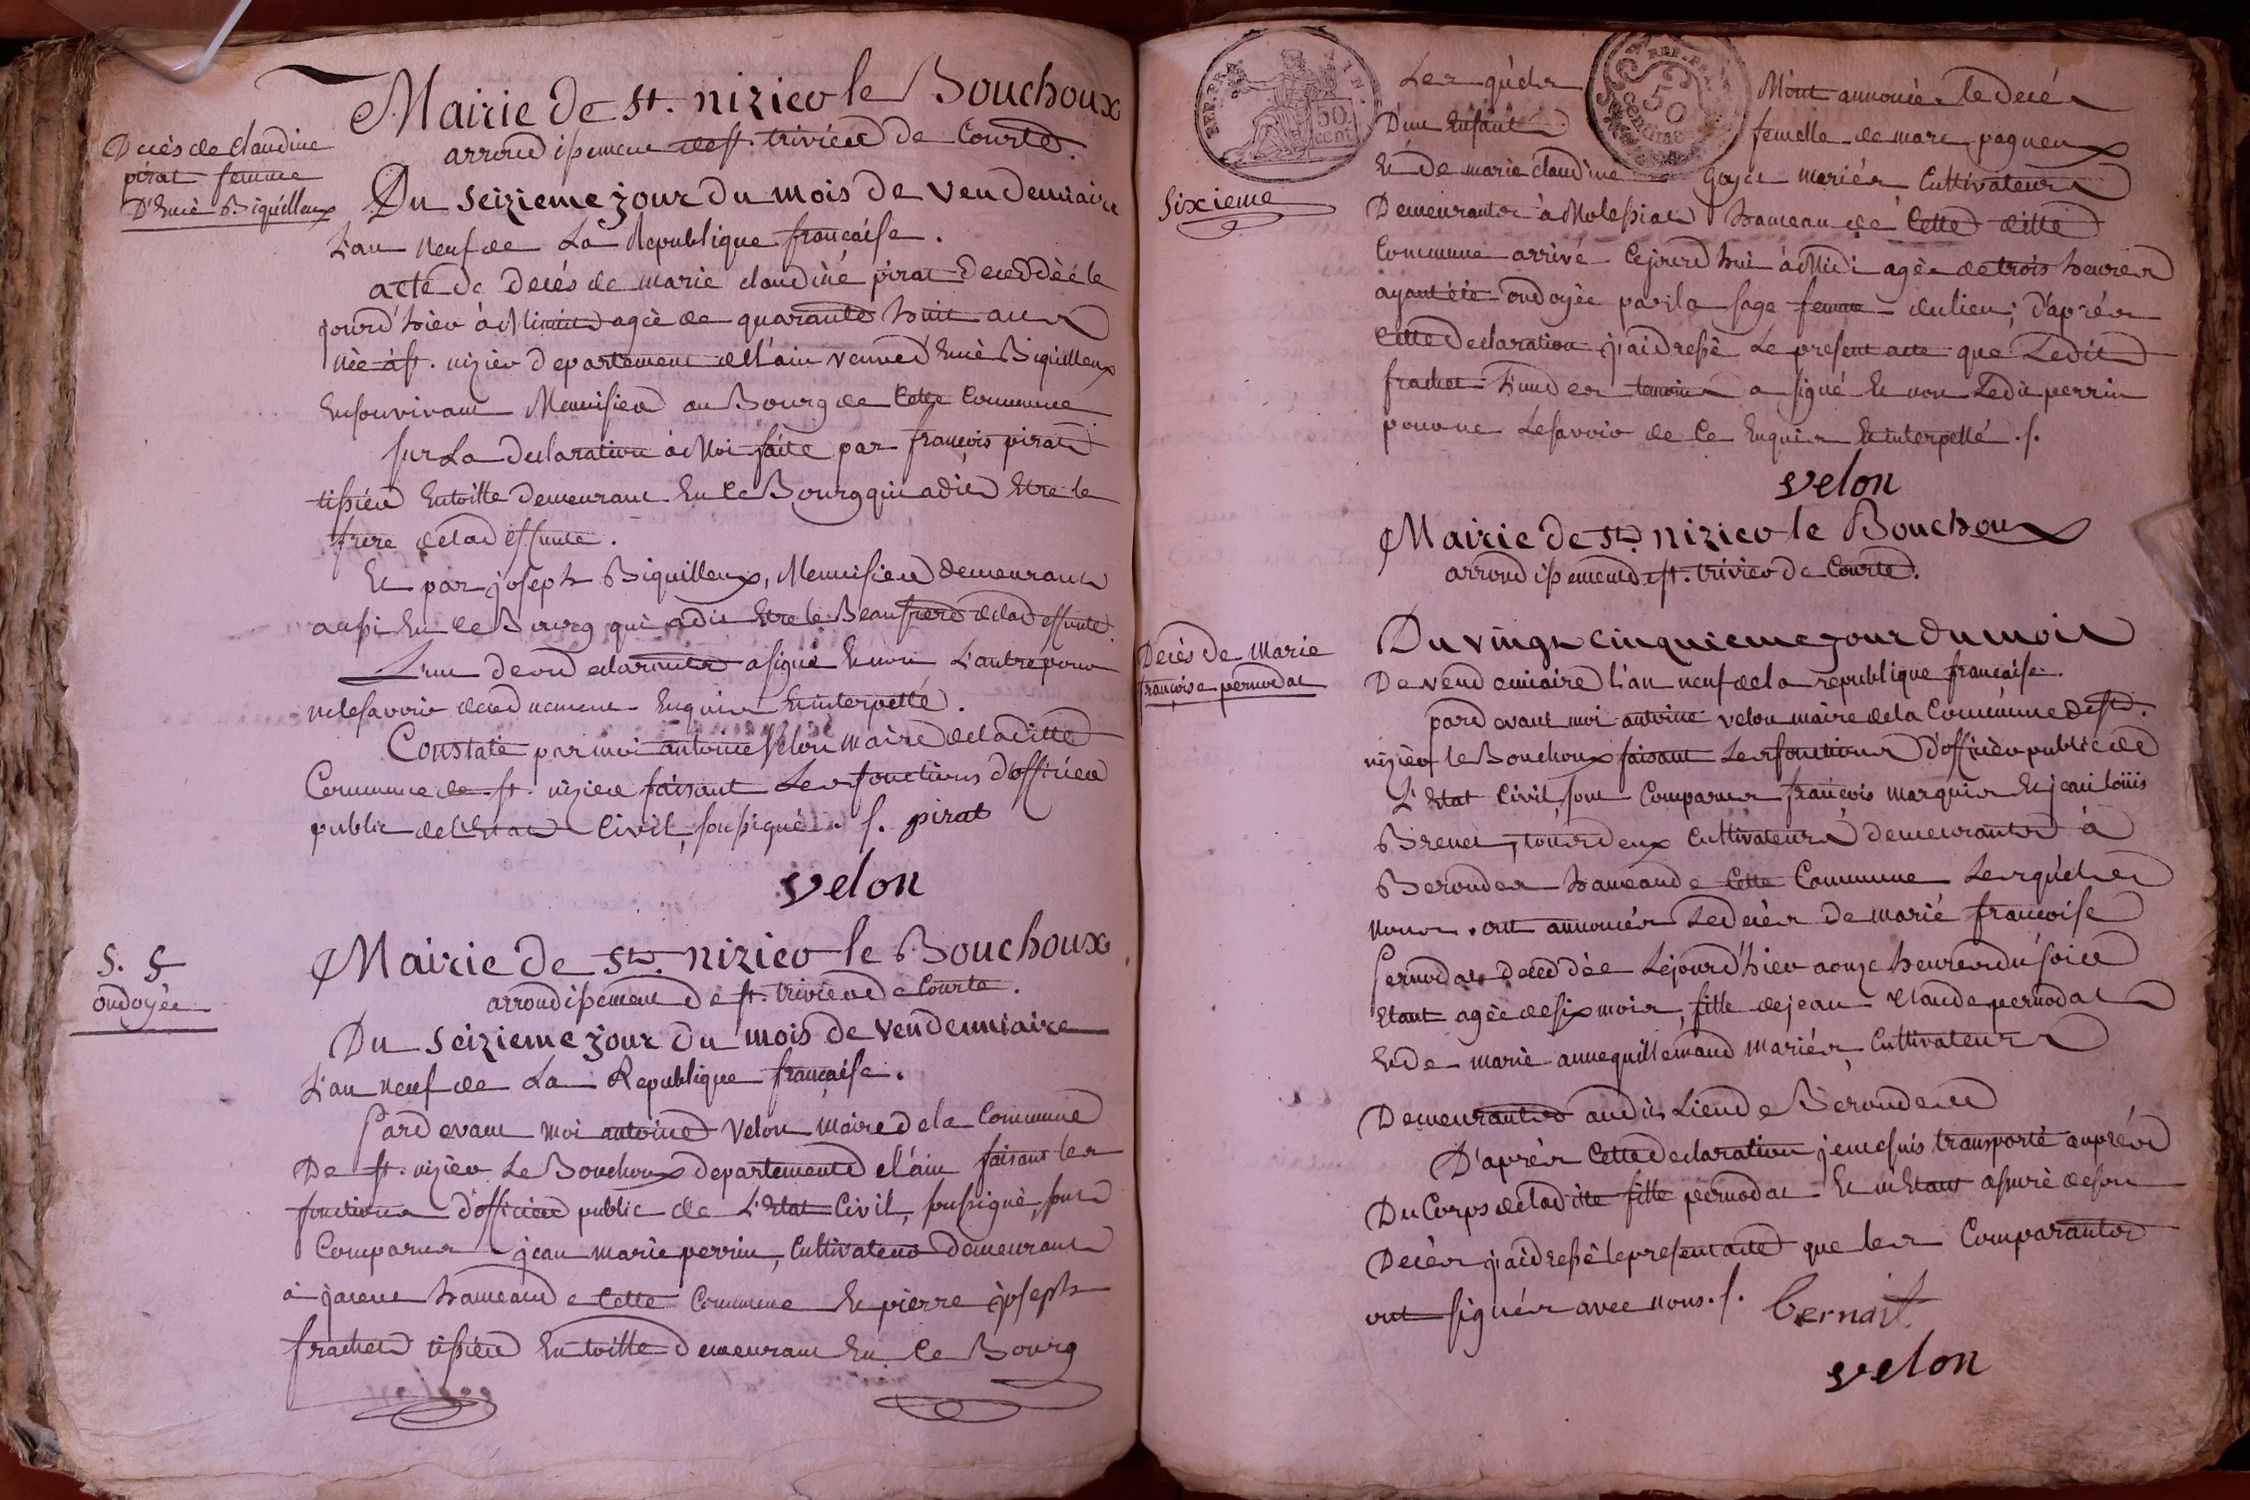 Mairie de St. nizier le Bouchoux
arrondissement de st. trivier de Courte.
Décès de claudine
pirat femme
D'Enè Biquilleux
Du seizieme jour du mois de vendemiaire
L'an neuf de La Republique française.
acte de decés de marie claudine pirat deceddèé le
jourd'hier à Minuit agée de quarante huit ans
née à st. nizier departement de l'ain Venue d'Enè Biquilleux
En souvivant Menuisier au Bourg de Cette Commune
sur La declaration à Moi faite par françois pirat
tissier En toille demeurant En Ce Bourg qui a dit Etre le
frere de la deffunte.
Et par joseph Biquilleux, Menuisier demeurant
aussi En Ce Bourg qui a dit Etre le Beaufrere de la deffunte.
L'un des declarants a signé Et non L'autre pour
ne le savoir de ce duement Enquis Et interpellé.
Constaté par moi antoine Velon maire de la ditte
Commune de st. nizier faisant Les fonctions d'officier
public de l'Etat Civil, soussigné. f. pirat
velon
S. S
ondoyée
Mairie de St. nizier le Bouchoux
arrondissement de st. trivier de Courte.
Du seizieme jour du mois de vendemiaire
L'an neuf de La Republique française.
Pard evant moi antoine Velon maire de la Commune
De st. nizier Le Bouchoux departement de l'ain faisant les
fonctions d'officier public de L'Etat Civil, soussigné, sont
Comparus jean marie perrin, Cultivateur demeurant
à hameau de Cette Commune Et pierre joseph
frachet tissier En toille demeurant En Ce Bourg
Les quels M'ont annoncés le decés
D'un Enfant femelle de marc pagneux
Et de marie claudine Goyée mariés Cultivateurs
Sixieme
Demeurants à Molessiat hameau de Cette ditte
Commune arrivé Cejourd'hui à Midi agée de trois heures
ayant été ondoyée par la sage femme du lieu; d'aprés
Cette Declaration j'ai dressé Le present acte que Ledit
frachet L'un des temoins a signé Et non Ledit perrin
pour ne Le savoir de Ce Enquis Et interpellé. f.
velon
Mairie de St. nizier le Bouchoux
arrondissement de st. trivier de Courte.
Decés de Marie
françoise pernodat
Du vingt cinquieme jour du mois
De vendemiaire l'an neuf de la republique française.
pard evant moi antoine velon maire de la Commune de st.
nizier le Bouchoux faisant Les fonctions d'officier public de
L'Etat Civil sont Comparus françois marquis Et jean loüis
Brenet, tous deux Cultivateurs demeurants à
Berondes hameau de Cette Commune Lesquels
nous ont annoncés Le decés de marie francoise
Pernodat deceddèe Lejourd'hier a onze heures du soir
Etant agée de six mois, fille de jean claude pernodat
Et de marie anne quillemand Mariés Cultivateurs
Demeurants audit Lieu de Beronde
D'aprés Cette Declaration je me suis transporté auprés
Du Corps de la ditte fille pernodat Et m'Etant assuré de son
Decés j'ai dressé le present acte que les Comparants
ont signés avec nous. f. bernait
velon